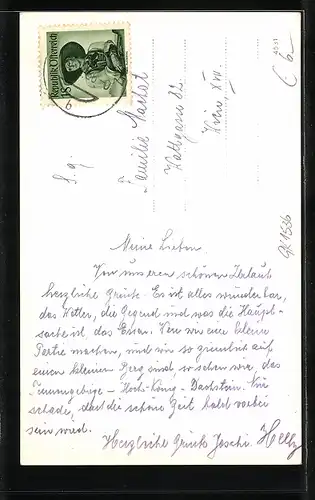 Republik Österreich
S. g.
Familie
Wattgasse 82
Wien, XVII.
Meine Lieben
Von unseren schönen Urlaub
herzliche Grüße. Es ist alles wunderbar,
das Wetter, die Gegend und was die Haupt-
sache ist, das Essen. Wenn wir eine kleine
Partie machen, und wir so ziemlich auf
einen kleinen Berg sind, so sehen wir, das
Tennengebirge – Hoch-König – Dachstein. Nur
schade, daß die schöne Zeit bald vorbei
sein wird.
Herzliche Grüße Joschi. Helly